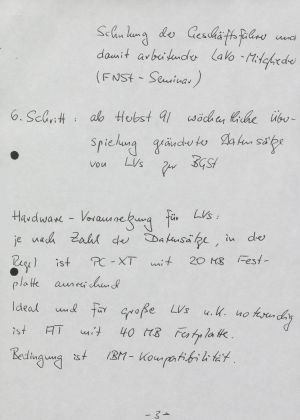 Schulung der Geschäftsführer und
damit arbeitender LaVo-Mitglieder
(FNSt-Seminar)
6. Schritt: ab Herbst 91 wöchentliche Über-
spielung geänderter Datensätze
von LVs zur BGSt
Hardware-Voraussetzung für LVs:
je nach Zahl der Datensätze, in der
Regel ist PC-XT mit 20 MB Fest-
platte ausreichend
Ideal und für große LVs u.U. notwendig
ist AT mit 40 MB Festplatte.
Bedingung ist IBM-Kompatibilität.
-3-